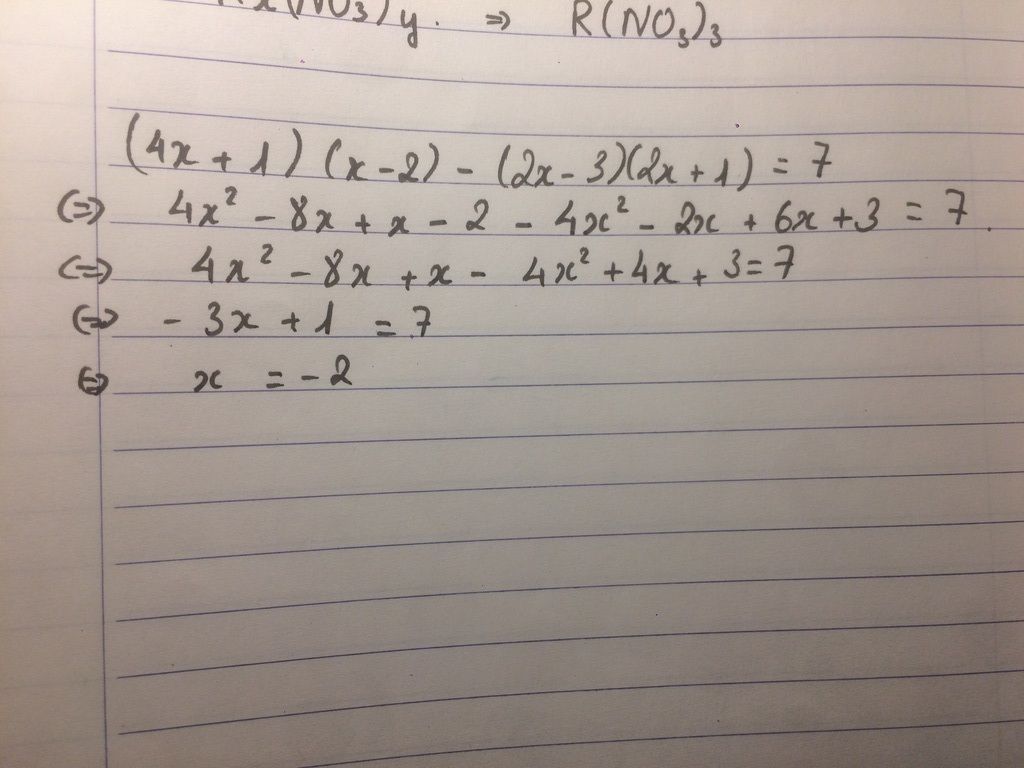 Rx(NO3)y. => R(NO3)3
(4x + 1) (x - 2) - (2x - 3)(2x + 1) = 7
(=) 4x² - 8x + x - 2 - 4x² - 2x + 6x + 3 = 7.
(=) 4x² - 8x + x - 4x² + 4x + 3 = 7
(=) - 3x + 1 = 7
(=) x = -2